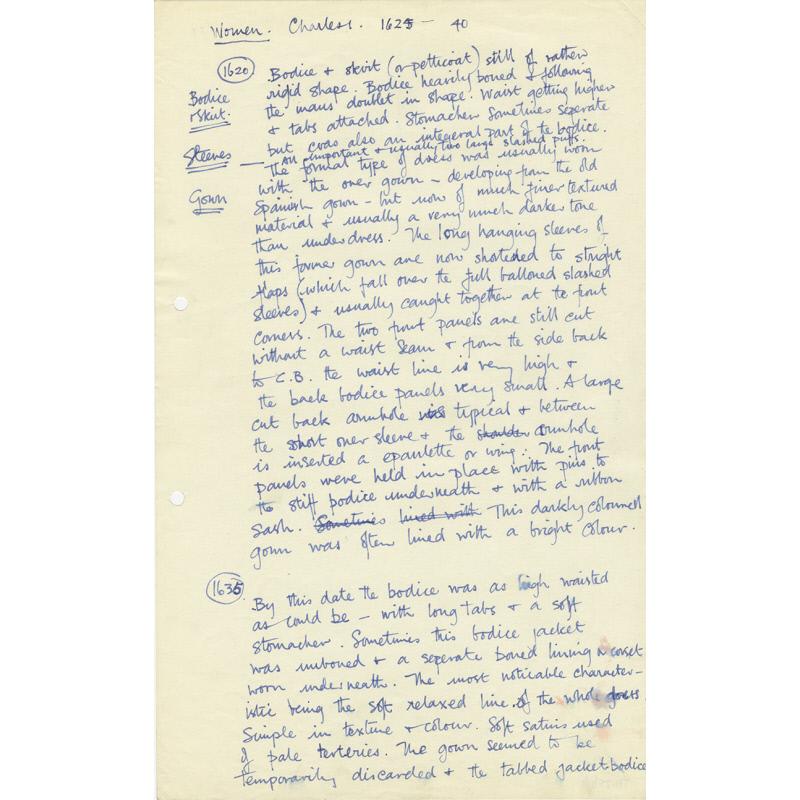 Women. Charles I. 1625 - 40
1620
Bodice & skirt (or petticoat) still of rather
rigid shape. Bodice heavily boned & following
Bodice
& Skirt.
the mans doublet in shape. Waist getting higher
& tabs attached. Stomacher sometimes seperate
but was also an integeral part of the bodice.
Sleeves — All important & usually two large slashed puffs.
The formal type of dress was usually worn
Gown
with the over gown - developing from the old
Spanish gown - but now of much finer textured
material & usually a very much darker tone
than underdress. The long hanging sleeves of
this former gown are now shorteded to stright
flaps (which fall over the full balloned slashed
sleeves) & usually caught together at the front
corners. The two front panels are still cut
without a waist seam & from the side back
to C.B. the waist line is very high &
the back bodice panels very small. A large
cut back armhole was typical & between
the short over sleeve & the shoulder armhole
is inserted a epaulette or wing. The front
panels were held in place with pins to
the stiff bodice underneath & with a ribbon
sash. Sometimes lined with This darkly coloured
gown was often lined with a bright colour.
1635
By this date the bodice was as high waisted
as could be - with long tabs & a soft
stomacher. Sometimes this bodice jacket
was unboned & a seperate boned lining or corset
worn underneath. The most noticable character-
istic being the soft relaxed line of the whole dress.
Simple in texture & colour. Soft satins used
of pale terteries. The gown seemed to be
temporarily discarded & the tabbed jacket bodice